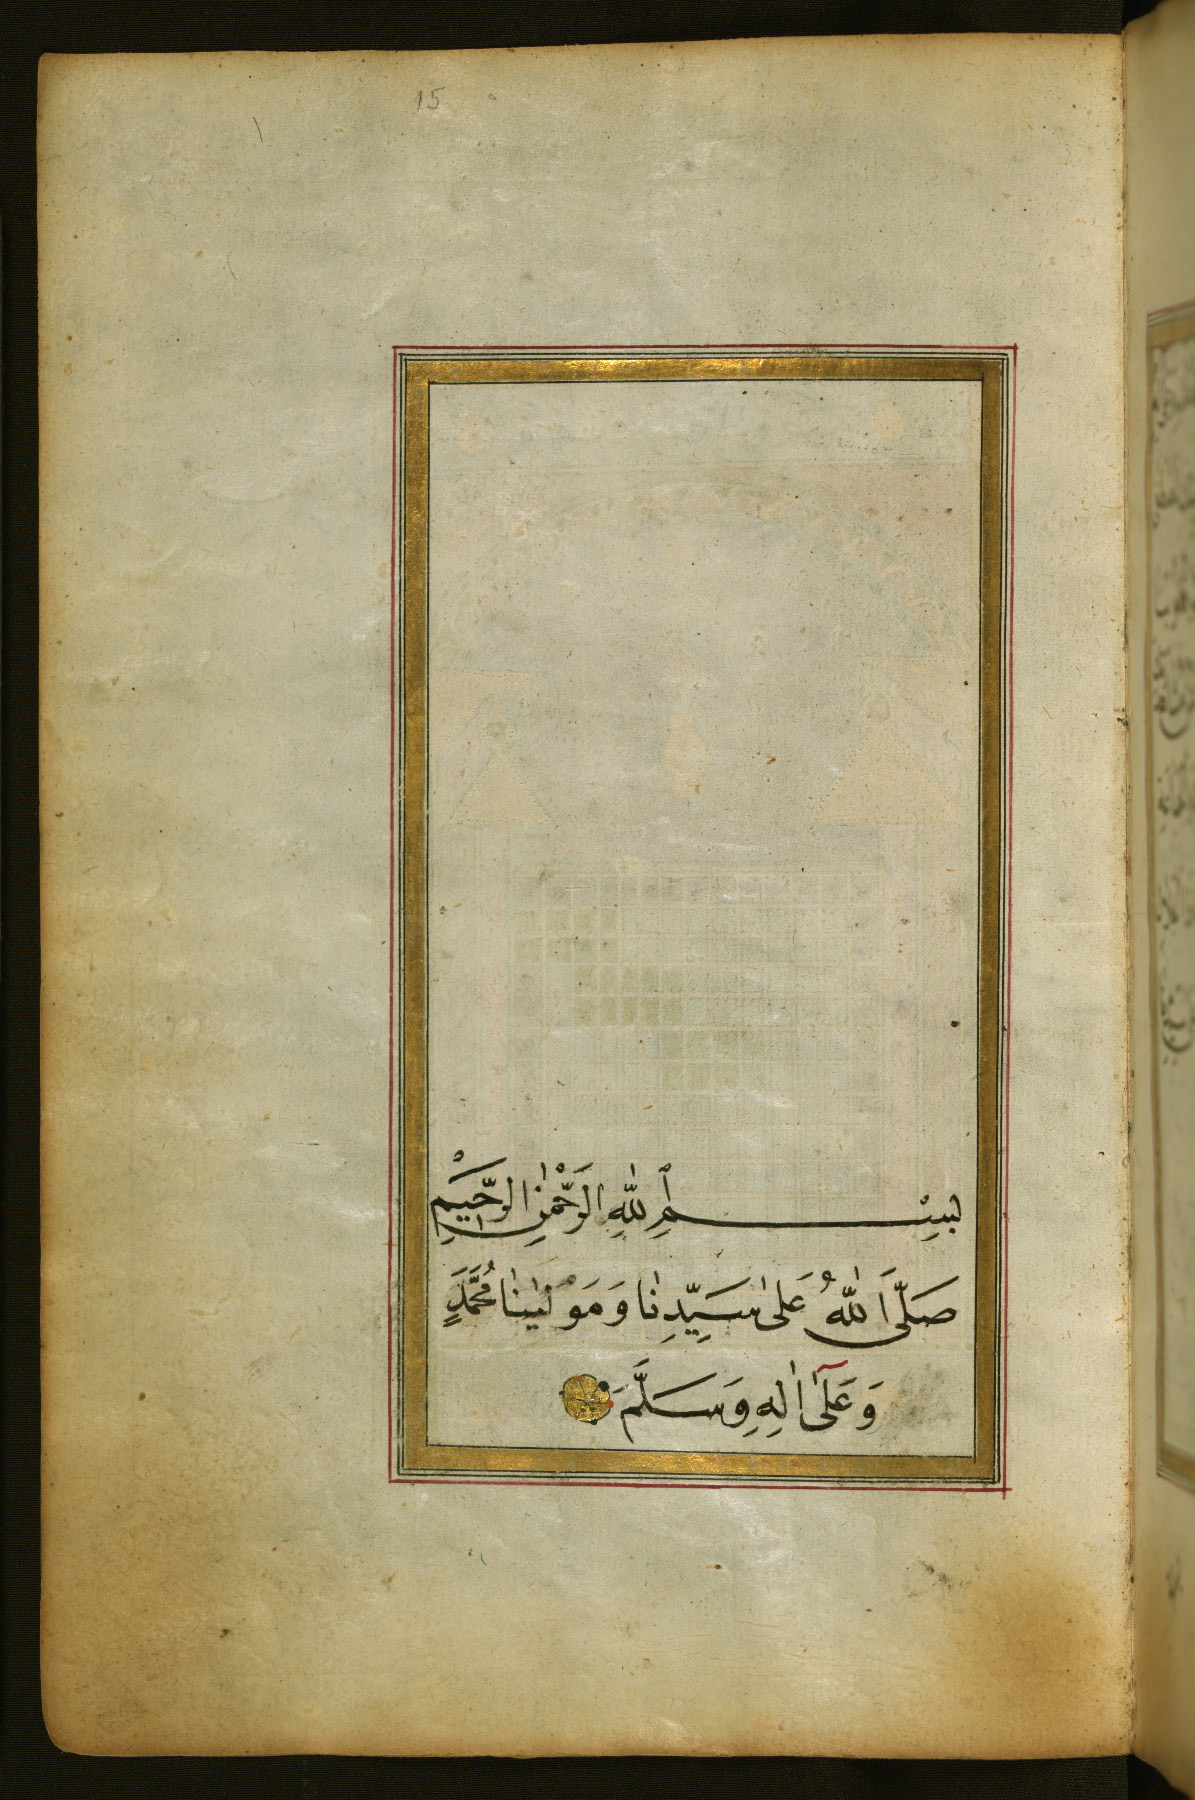 15
بِسْمِ اللّٰهِ الرَّحْمٰنِ الرَّحٖيمِ
صَلَّى اللّٰهُ عَلٰى سَيِّدِنَا وَمَوْلٰينَا مُحَمَّدٍ
وَعَلٰٓى اٰلِهِ وَسَلَّمَ